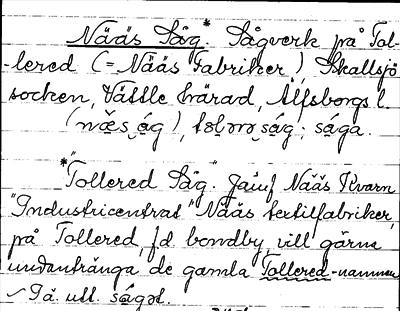 Nääs Såg.* Sågverk på Tol-
-lered (=Nääs Fabriker) Skallsjö
socken, Vättle härad, Älfsborgs l.
(næ̀s ág), tɔlərəság; sága.
*"Tollered Såg." Jämf Nääs Kvarn
"Industricentrat" Nääs textilfabriker,
på Tollered, f.d bondby, vill gärna
undantränga de gamla Tollered-namnen
Tå. utt. ságət.